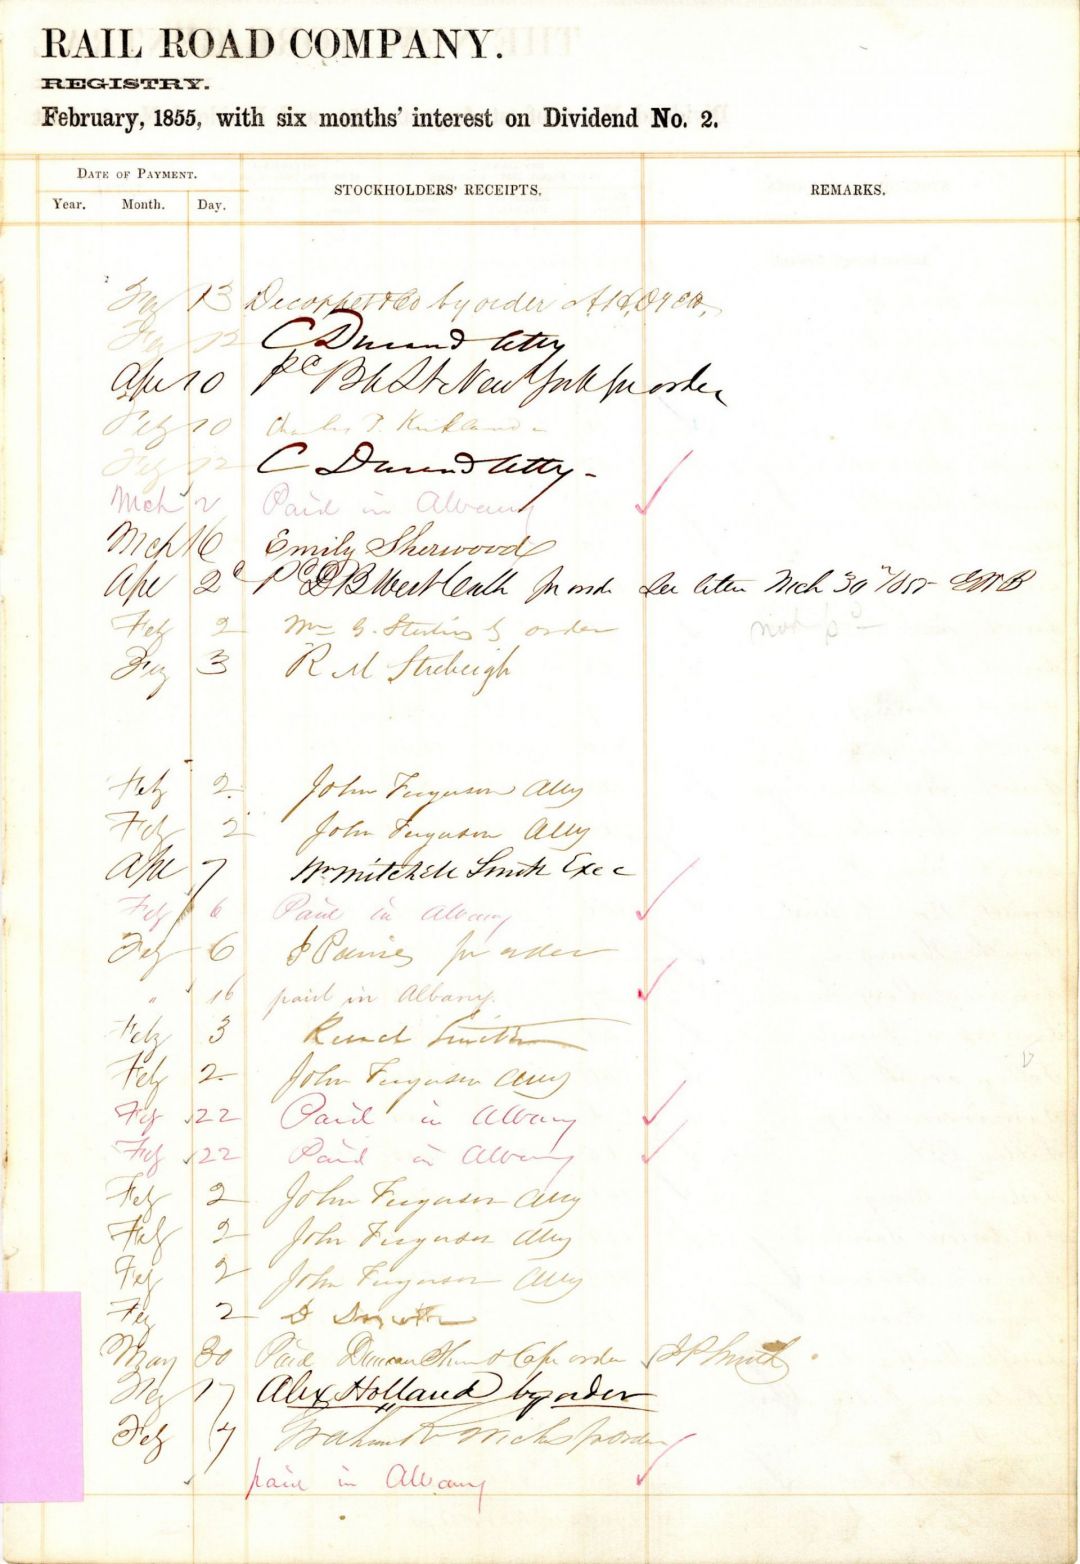 RAIL ROAD COMPANY.
REGISTRY.
February, 1855, with six months' interest on Dividend No. 2.
DATE OF PAYMENT.
STOCKHOLDERS' RECEIPTS.
REMARKS.
Year. Month. Day.
Feb 13 by order
Feb 12 C Durand Atty
Ape 10 New York pr order
Feb 10 Charles P. Kirkland
Feb 12 C Durand Atty -
Mch 2 Paid in Albany
Mch 16 Emily Sherwood
Ape 2 pr order See letter Mch 30
Feb 2 order
Feb 3 R M Strebeigh
Feb 2 John Ferguson Atty
Feb 2 John Ferguson Atty
Ape 7 Wm Mitchell Smith Exec
Feb 6 Paid in Albany
Feb 6 pr order
" 16 paid in Albany.
Feb 3 Smith
Feb 2 John Ferguson Atty
Feb 22 Paid in Albany
Feb 22 Paid in Albany
Feb 2 John Ferguson Atty
Feb 2 John Ferguson Atty
Feb 2 John Ferguson Atty
Feb 2 D
May 30 Paid Duncan Sherman & Co pr order J P Smith
Feb 17 Alex Holland by order
Feb 7 pr order
paid in Albany